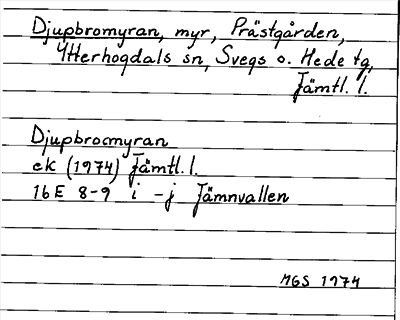 Djupbromyran, myr, Prästgården,
Ytterhogdals sn, Svegs o. Hede tg,
Jämtl. l.
Djupbrocmyran
ek (1974) Jämtl. l.
16E 8-9 i - j Jämnvallen
MGS 1974